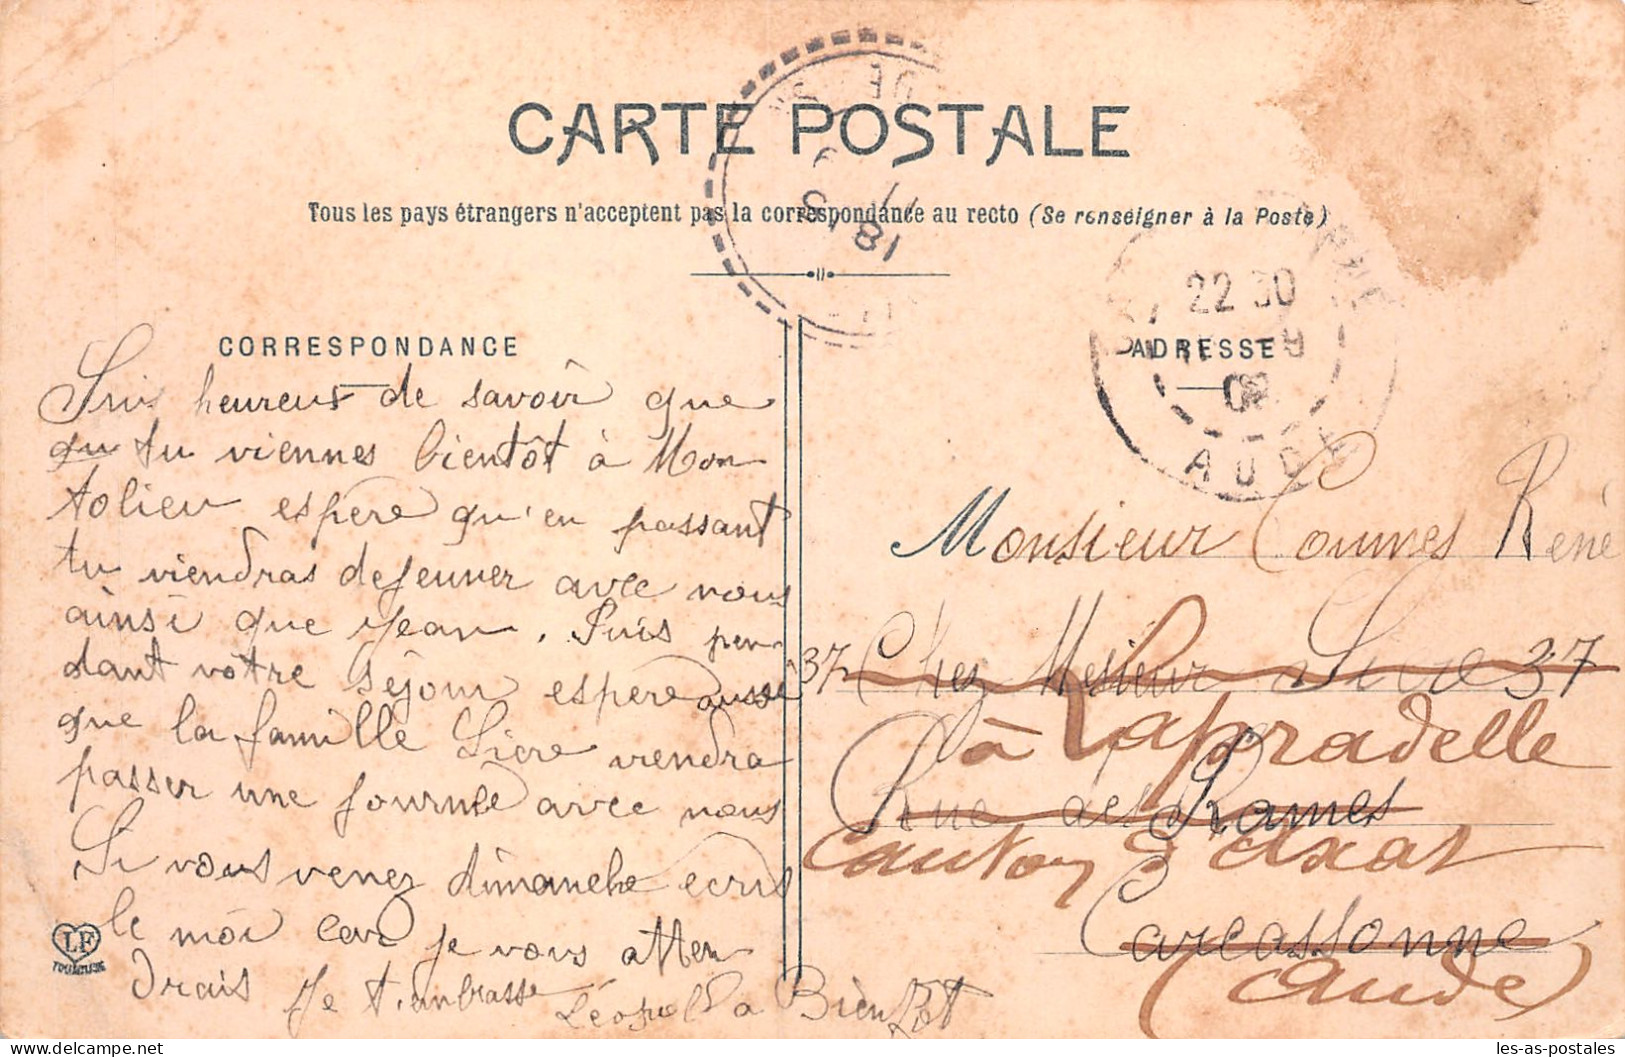 CARTE POSTALE
Tous les pays étrangers n'acceptent pas la correspondance au recto (Se renseigner à la Poste)
CORRESPONDANCE
Suis heureux de savoir que
qu tu viennes bientôt à Mon
tolieu espère qu'en passant
tu viendras dejeuner avec nous
ainsi que Jean. Puis pen
dant votre séjour espere aussi
que la famille Sicre viendra
passer une journée avec nous
Si vous venez dimanche ecris
le moi car je vous atten
drais Je t'embrasse
à Bientôt
LF
TOULOUSE
DE
18
22 30
ADRESSE
08
AUDE
Monsieur Coumes René
37 Chez Mesieur Sicre 37
à Lapradelle
Rue des Rames
Canton d'Axat
Carcassonne
(Aude)
Delcampe.net
les-as-postales